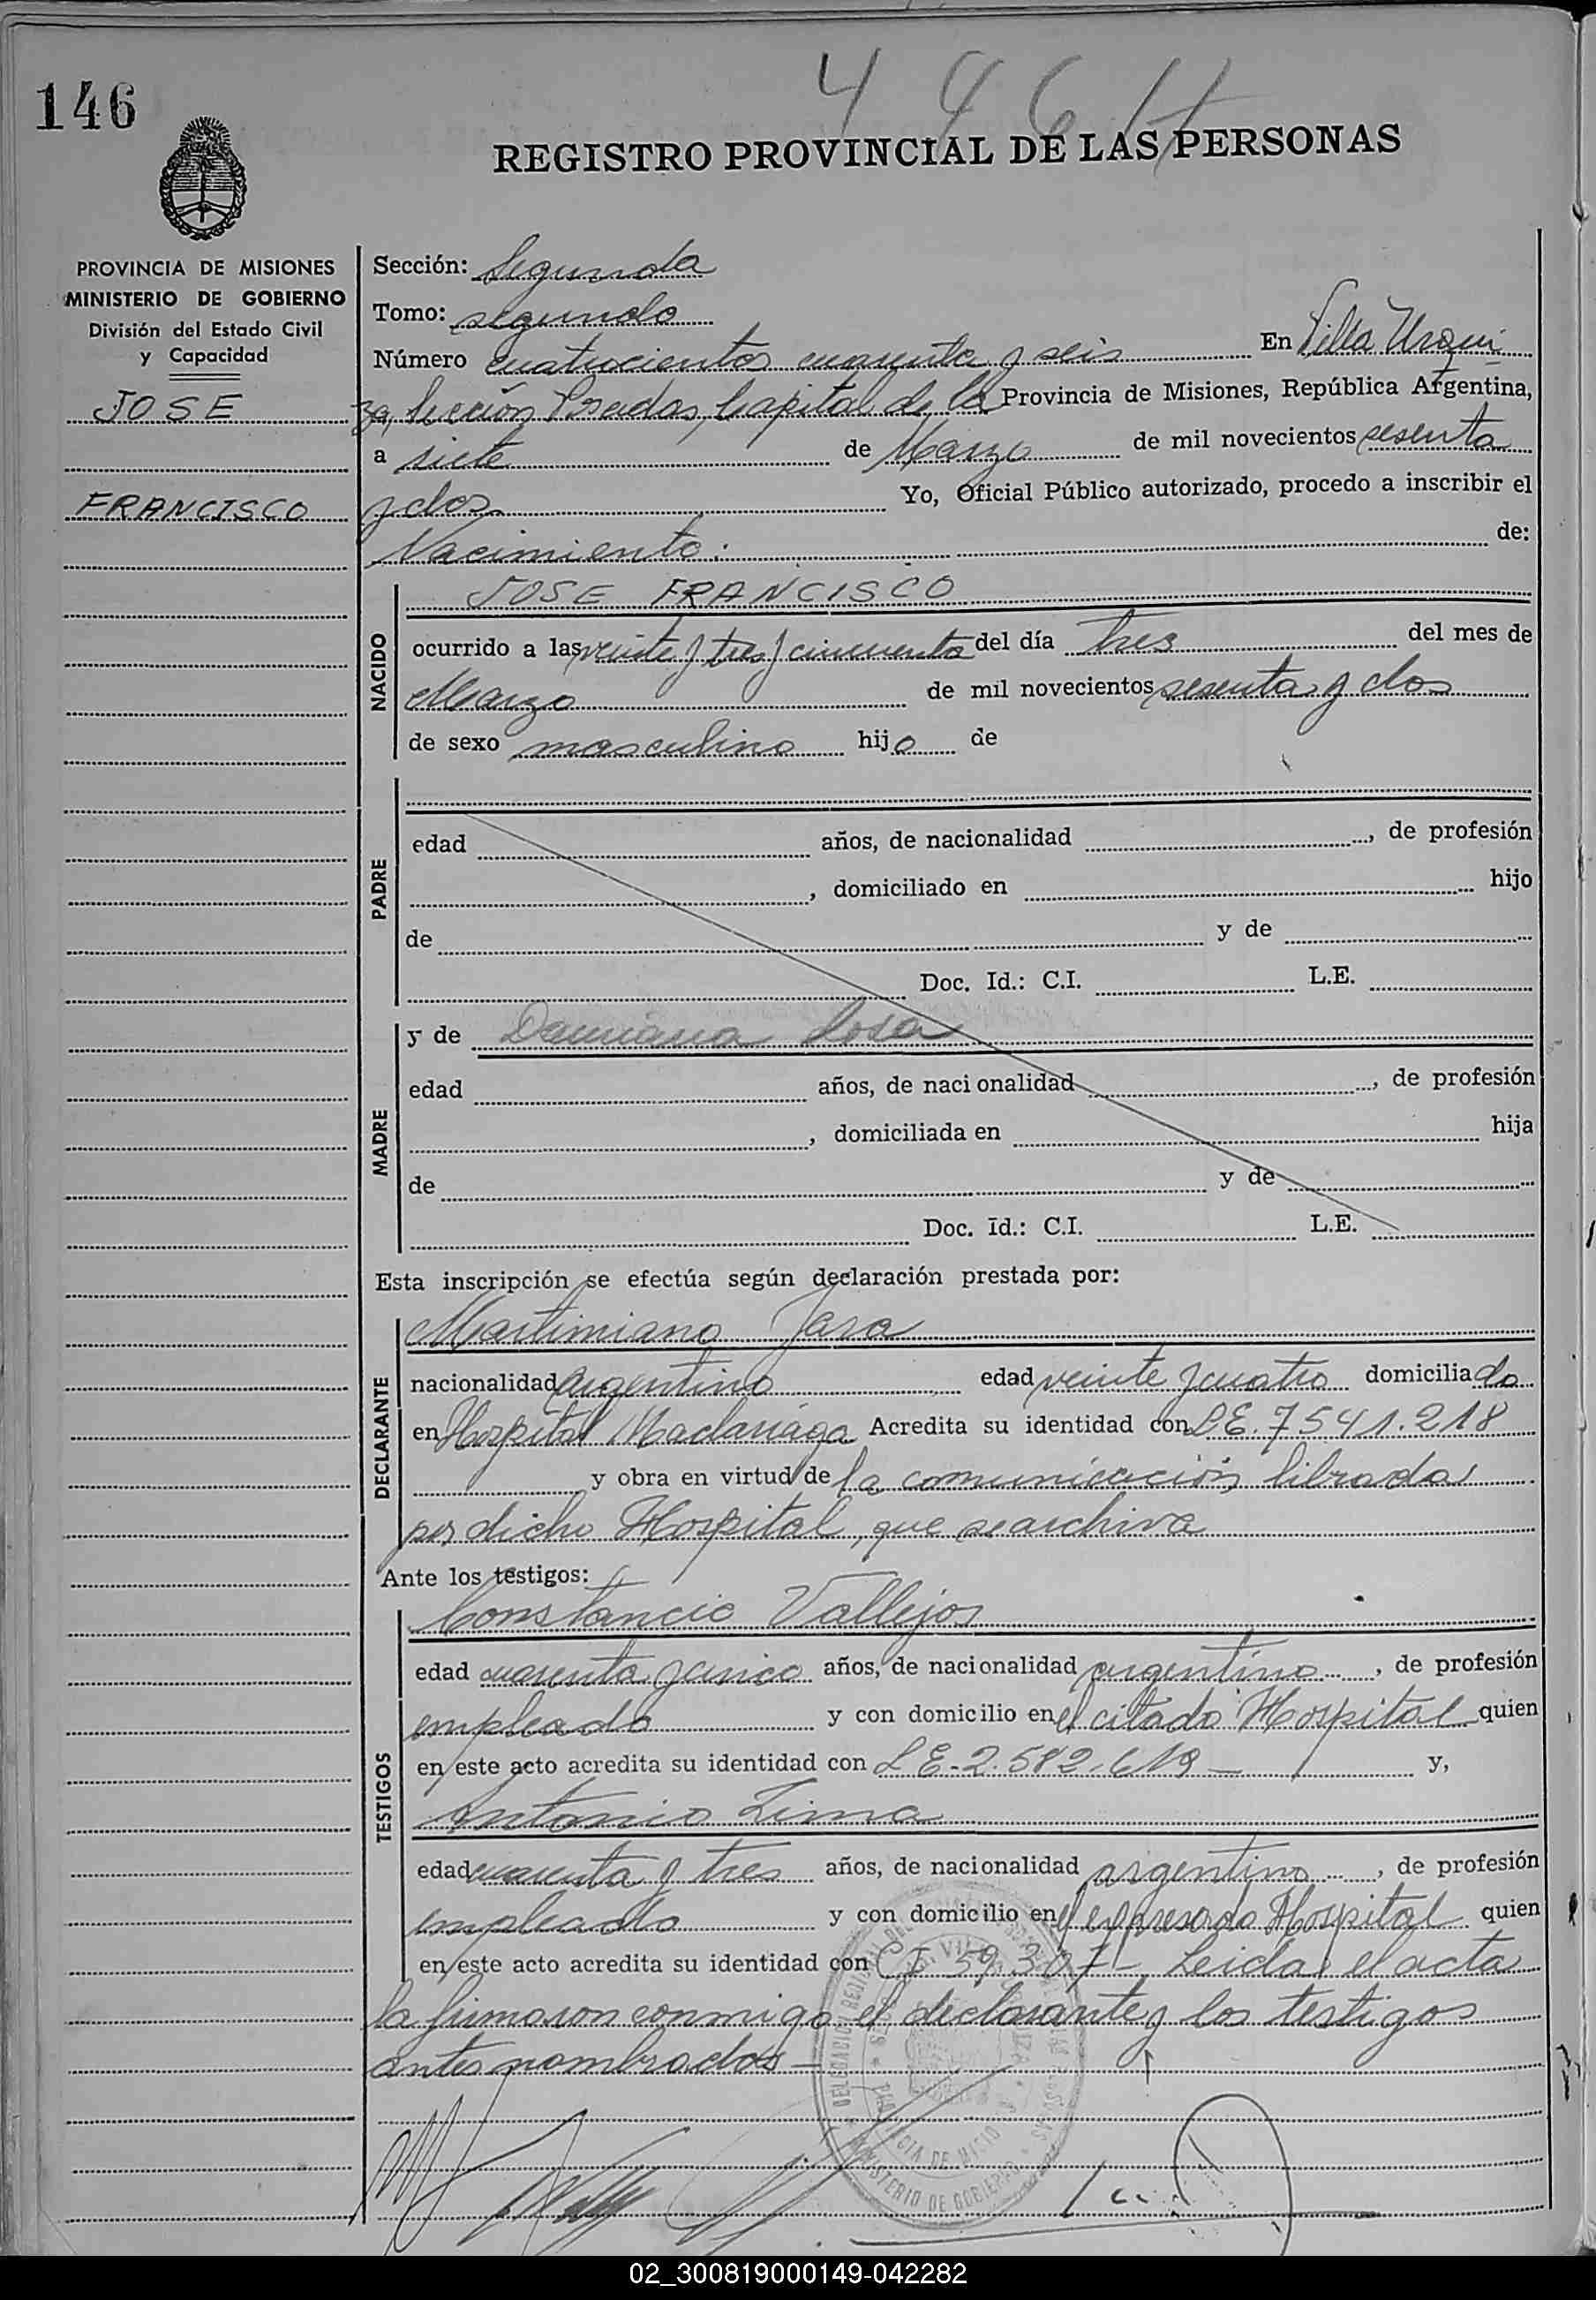 146
446 H
REGISTRO PROVINCIAL DE LAS PERSONAS
PROVINCIA DE MISIONES
MINISTERIO DE GOBIERNO
División del Estado Civil
y Capacidad
JOSE
FRANCISCO
Sección: Segunda
Tomo: segundo
Número cuatrocientos cuarenta y seis En Villa Urqui
za, Sección Posadas, Capital de la Provincia de Misiones, República Argentina,
a siete de Marzo de mil novecientos sesenta
y dos Yo, Oficial Público autorizado, procedo a inscribir el
Nacimiento: de:
NACIDO
JOSE FRANCISCO
ocurrido a las veinte y tres y cincuenta del día tres del mes de
Marzo de mil novecientos sesenta y dos
de sexo masculino hijo de
PADRE
edad años, de nacionalidad , de profesión
, domiciliado en hijo
de y de
Doc. Id.: C.I. L.E.
MADRE
y de Damiana Sosa
edad años, de nacionalidad , de profesión
, domiciliada en hija
de y de
Doc. Id.: C.I. L.E.
Esta inscripción se efectúa según declaración prestada por:
DECLARANTE
Martimiano Jara
nacionalidad argentino edad veinte y cuatro domiciliado
en Hospital Madariaga Acredita su identidad con L.E. 7541.218
y obra en virtud de la comunicación librada
por dicho Hospital, que se archiva
Ante los testigos:
TESTIGOS
Constancio Vallejos
edad cuarenta y cinco años, de nacionalidad argentino , de profesión
empleado y con domicilio en el citado Hospital quien
en este acto acredita su identidad con L E-2.582.619 - y,
Antonio Lima
edad cuarenta y tres años, de nacionalidad argentino , de profesión
empleado y con domicilio en el expresado Hospital quien
en este acto acredita su identidad con C I 59307- Leida el acta
la firmaron conmigo el declarante y los testigos
antes nombrados -
MINISTERIO DE GOBIERNO
02_300819000149-042282